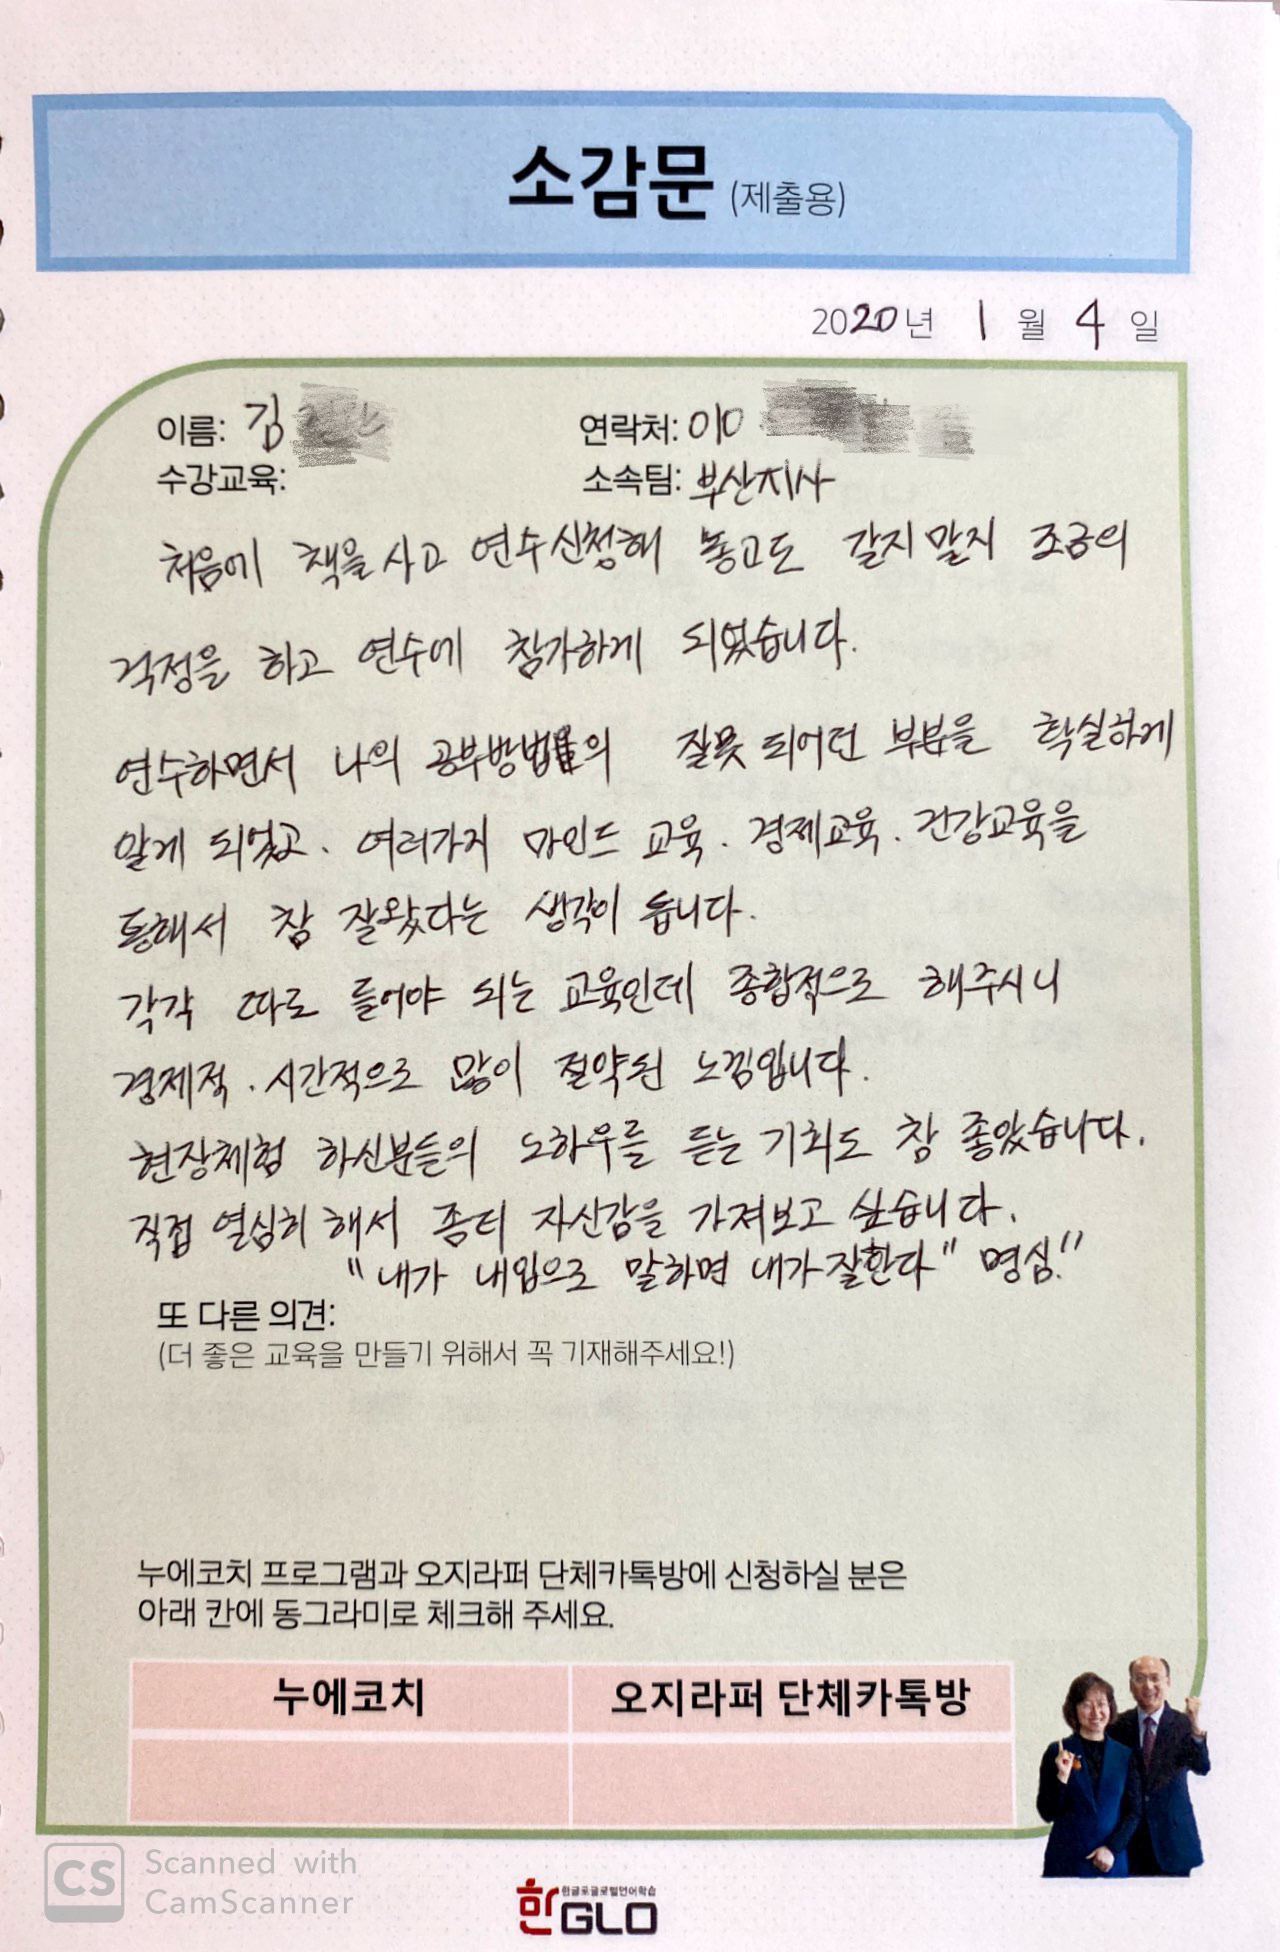 소감문 (제출용)
2020년 1월 4일
이름: 김
연락처: 010
수강교육:
소속팀: 부산지사
처음에 책을 사고 연수신청해 놓고도 갈지 말지 조금의
걱정을 하고 연수에 참가하게 되었습니다.
연수하면서 나의 공부방법의 잘못 되어던 부분을 확실하게
알게 되었고. 여러가지 마인드 교육. 경제교육. 건강교육을
통해서 참 잘왔다는 생각이 듭니다.
각각 따로 들어야 되는 교육인데 종합적으로 해주시니
경제적. 시간적으로 많이 절약된 느낌입니다.
현장체험 하신분들의 노하우를 듣는 기회도 참 좋았습니다.
직접 열심히 해서 좀더 자신감을 가져보고 싶습니다.
"내가 내입으로 말하면 내가 잘한다" 명심!!
또 다른 의견:
(더 좋은 교육을 만들기 위해서 꼭 기재해주세요!)
누에코치 프로그램과 오지라퍼 단체카톡방에 신청하실 분은
아래 칸에 동그라미로 체크해 주세요.
누에코치
오지라퍼 단체카톡방
CS Scanned with
CamScanner
한글로글로벌언어학습
한GLO